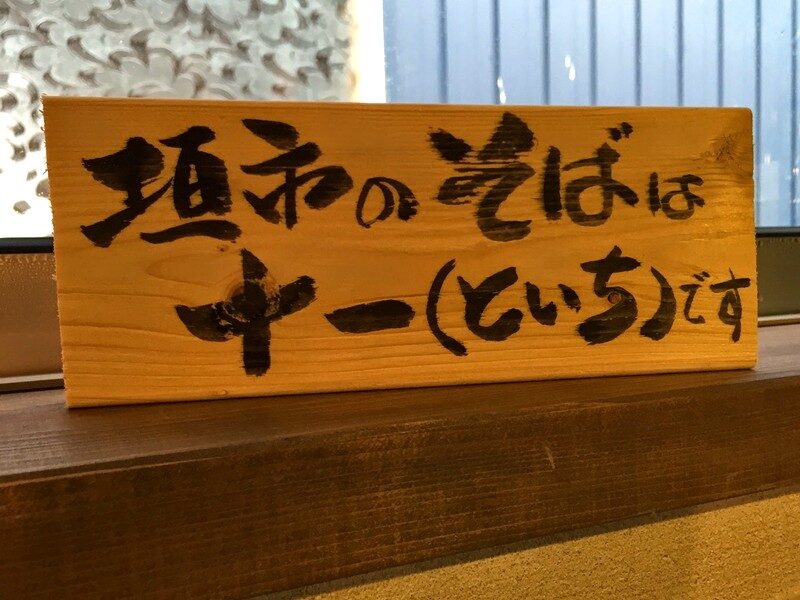 垣市のそばは
十一(といち)です